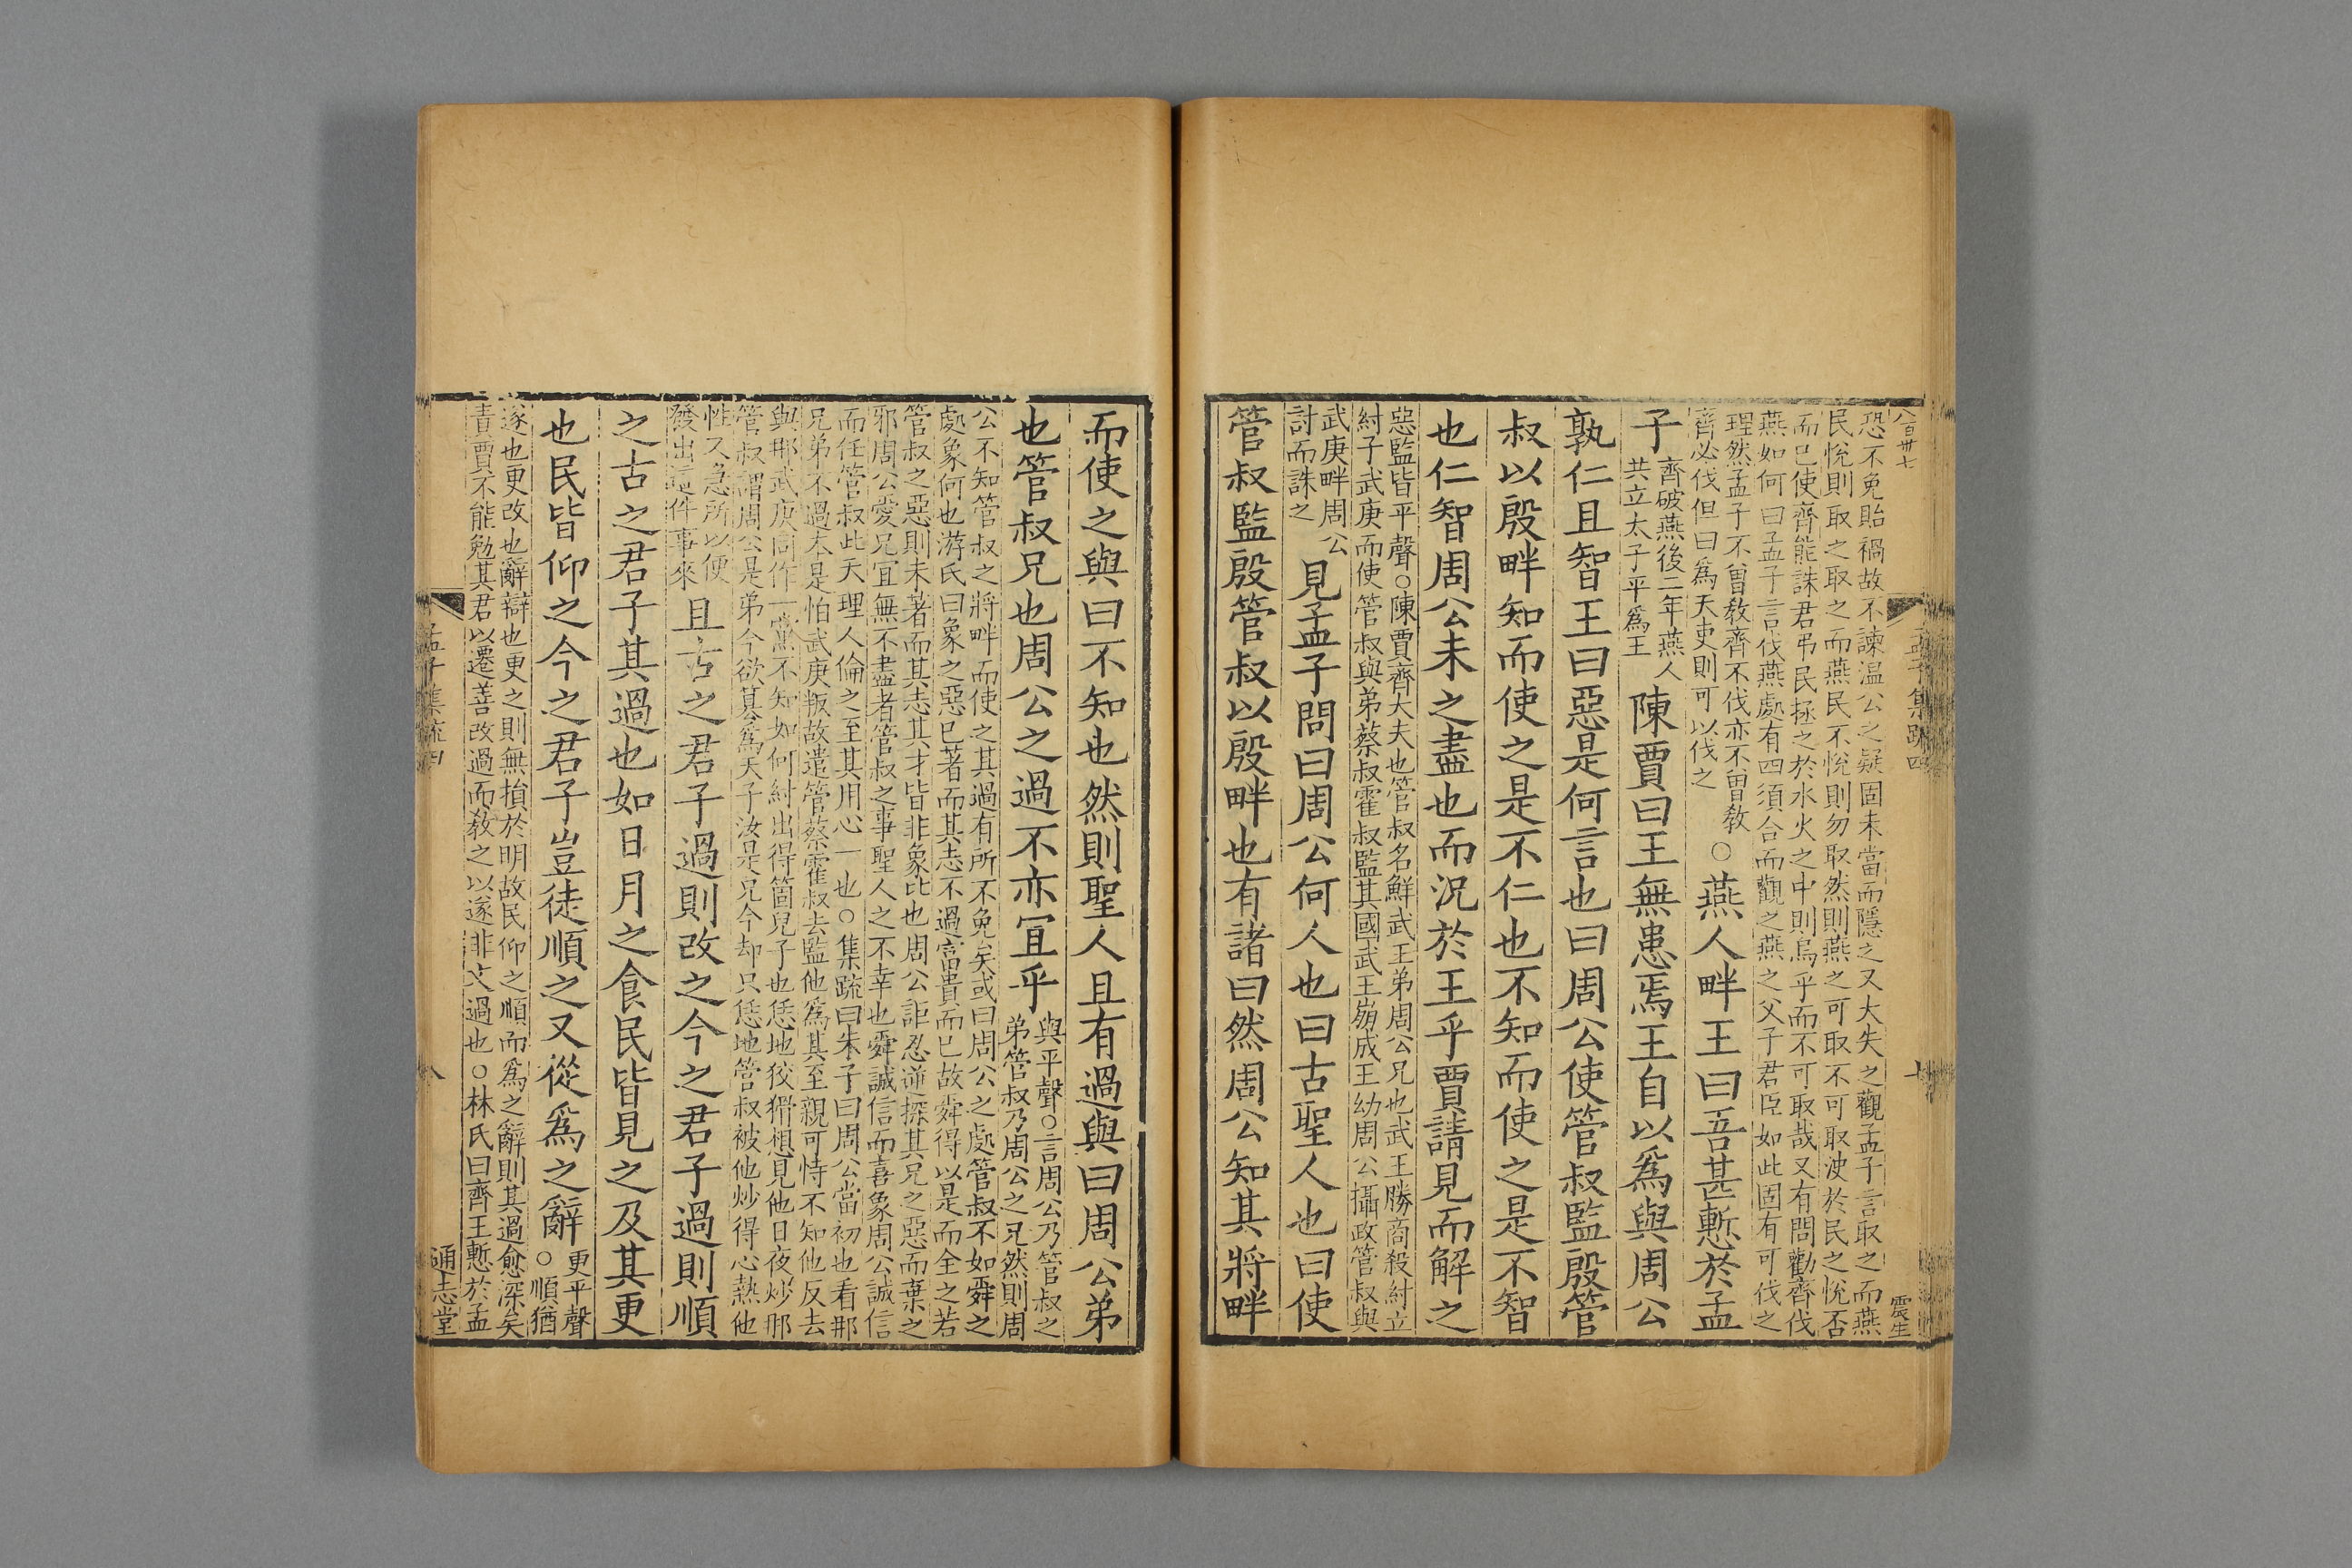 八百卅七
恐不免貽禍故不諫温公之疑固未當而隱之又大失之觀孟子言取之而燕
民悅則取之取之而燕民不悅則勿取然則燕之可取不可取決於民之悅否
而已使齊能誅君弔民拯之於水火之中則烏乎而不可取哉又有問勸齊伐
燕如何曰孟子言伐燕處有四須合而觀之燕之父子君臣如此固有可伐之
理然孟子不曾敎齊不伐亦不曾敎
齊必伐但曰爲天吏則可以伐之
○燕人畔王曰吾甚慙於孟
子
齊破燕後二年燕人
共立太子平爲王
陳賈曰王無患焉王自以爲與周公
孰仁且智王曰惡是何言也曰周公使管叔監殷管
叔以殷畔知而使之是不仁也不知而使之是不智
也仁智周公未之盡也而況於王乎賈請見而解之
惡監皆平聲○陳賈齊大夫也管叔名鮮武王弟周公兄也武王勝商殺紂立
紂子武庚而使管叔與弟蔡叔霍叔監其國武王崩成王幼周公攝政管叔與
武庚畔周公
討而誅之
見孟子問曰周公何人也曰古聖人也曰使
管叔監殷管叔以殷畔也有諸曰然周公知其將畔
孟子集疏四
十
震生
而使之與曰不知也然則聖人且有過與曰周公弟
也管叔兄也周公之過不亦宜乎
與平聲○言周公乃管叔之
弟管叔乃周公之兄然則周
公不知管叔之將畔而使之其過有所不免矣或曰周公之處管叔不如舜之
處象何也游氏曰象之惡已著而其志不過富貴而已故舜得以是而全之若
管叔之惡則未著而其志其才皆非象比也周公詎忍逆探其兄之惡而棄之
邪周公愛兄宜無不盡者管叔之事聖人之不幸也舜誠信而喜象周公誠信
而任管叔此天理人倫之至其用心一也○集疏曰朱子曰周公當初也看那
兄弟不過本是怕武庚叛故遣管蔡霍叔去監他爲其至親可恃不知他反去
與那武庚同作一黨不知如何紂出得箇兒子也恁地狡猾想見他日夜炒那
管叔謂周公是弟今欲篡爲天子汝是兄今却只恁地管叔被他炒得心熱他
性又急所以便
發出這件事來
且古之君子過則改之今之君子過則順
之古之君子其過也如日月之食民皆見之及其更
也民皆仰之今之君子豈徒順之又從爲之辭
更平聲
○順猶
遂也更改也辭辯也更之則無損於明故民仰之順而爲之辭則其過愈深矣
責賈不能勉其君以遷善改過而敎之以遂非文過也○林氏曰齊王慙於孟
孟子集疏四
八
通志堂